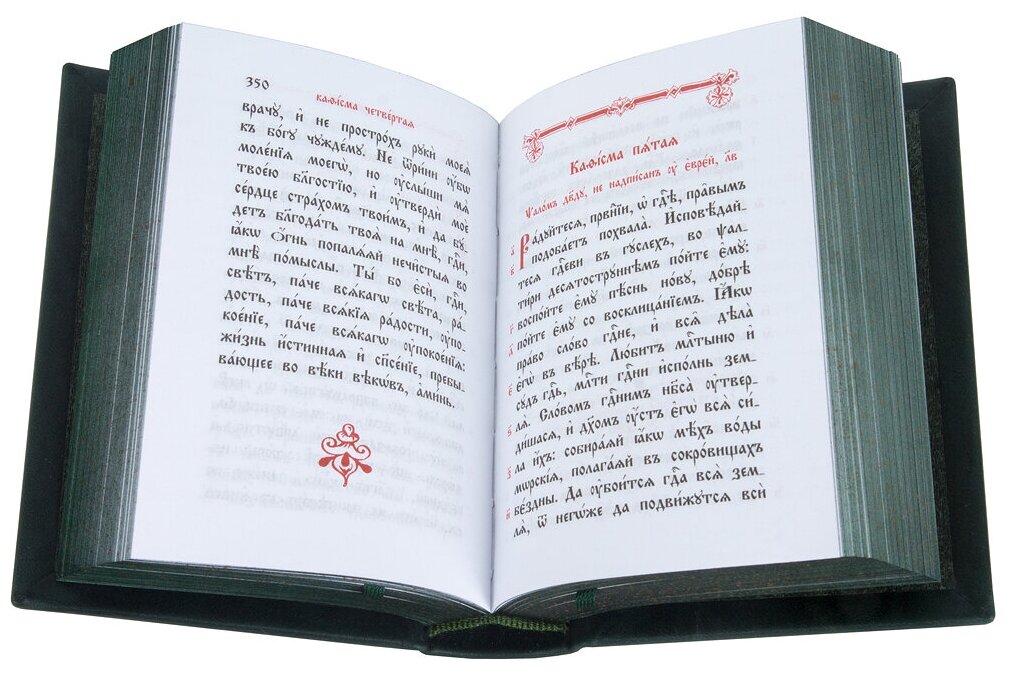 350
каѳі́сма четве́ртая
врачꙋ̀, и҆ не простро́хъ рꙋ́ки моеѧ̀
къ бо́гꙋ чꙋжде́мꙋ. Не ѿри́ни ᲂу҆́бѡ
моле́нїѧ моегѡ̀, но ᲂу҆слы́ши мѧ̀
твое́ю бл҃гостїю, и҆ ᲂу҆твердѝ моѐ
се́рдце стра́хомъ твои́мъ, и҆ да бꙋ́_
детъ бл҃года́ть твоѧ̀ на мнѣ̀, гдⷭ҇и,
ꙗ҆́кѡ ѻ҆́гнь попалѧ́ѧй нечи̑стыѧ во
мнѣ̀ по́мыслы. Ты́ бо є҆сѝ, гдⷭ҇и,
свѣ́тъ, па́че всѧ́кагѡ свѣ́та, ра́_
дость, па́че всѧ́кїѧ ра́дости, ᲂу҆по_
кое́нїе, па́че всѧ́кагѡ ᲂу҆покое́нїѧ:
жи́знь и҆́стиннаѧ и҆ сп҃се́нїе, пребы_
ва́ющее во вѣ́ки вѣкѡ́въ, а҆ми́нь.
Каѳі́сма пѧ́таѧ
Ѱало́мъ дв҃дꙋ, не надпи́санъ ᲂу҆ є҆вре́й, л҃в
а҃ Ра́дꙋйтесѧ, првⷣнїи, ѡ҆ гдⷭ҇ѣ, пра̑вымъ
в҃ подоба́етъ похвала̀. И҆сповѣ́дай_
тесѧ гдⷭ҇еви въ гꙋ́слехъ, во ѱал_
ти́ри десѧтострꙋ́ннѣмъ по́йте є҆мꙋ̀:
г҃ воспо́йте є҆мꙋ̀ пѣ́снь но́вꙋ, до́брѣ
по́йте є҆мꙋ̀ со восклица́нїемъ. Ꙗ҆́кѡ
д҃ пра́во сло́во гдⷭ҇не, и҆ всѧ̑ дѣла̀
є҆гѡ̀ въ вѣ́рѣ. Лю́битъ млⷭ҇тыню и҆
є҃ сꙋ́дъ гдⷭ҇ь, млⷭ҇ти гдⷭ҇ни и҆спо́лнь зем_
лѧ̀. Сло́вомъ гдⷭ҇нимъ нб҃са̀ ᲂу҆твер_
ѕ҃ ди́шасѧ, и҆ дх҃омъ ᲂу҆́стъ є҆гѡ̀ всѧ̀ си́_
ла и҆́хъ: собира́ѧй ꙗ҆́кѡ мѣ́хъ во́ды
з҃ мѡрскі́ѧ, полага́ѧй въ сокро́вищахъ
и҃ бе́здны. Да ᲂу҆бои́тсѧ гдⷭ҇а всѧ̀ зем_
лѧ̀, ѿ негѡ́же да подви́жꙋтсѧ всѝ